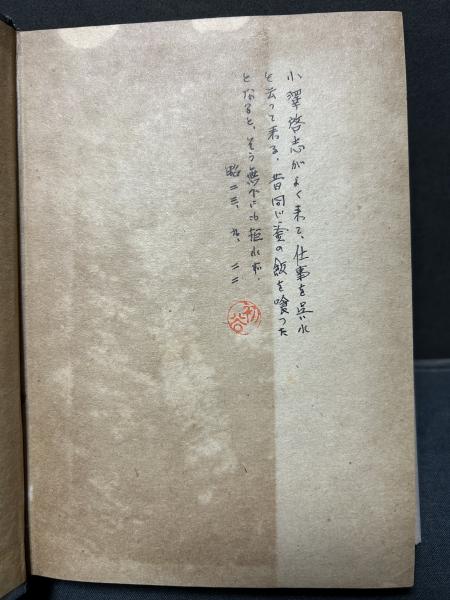 小澤啓志がよく来て、仕事を呉れ
と云って来る、昔同じ釜の飯を喰った
となると、そう無下にも拒れぬ.
昭二三、九、二二
初谷